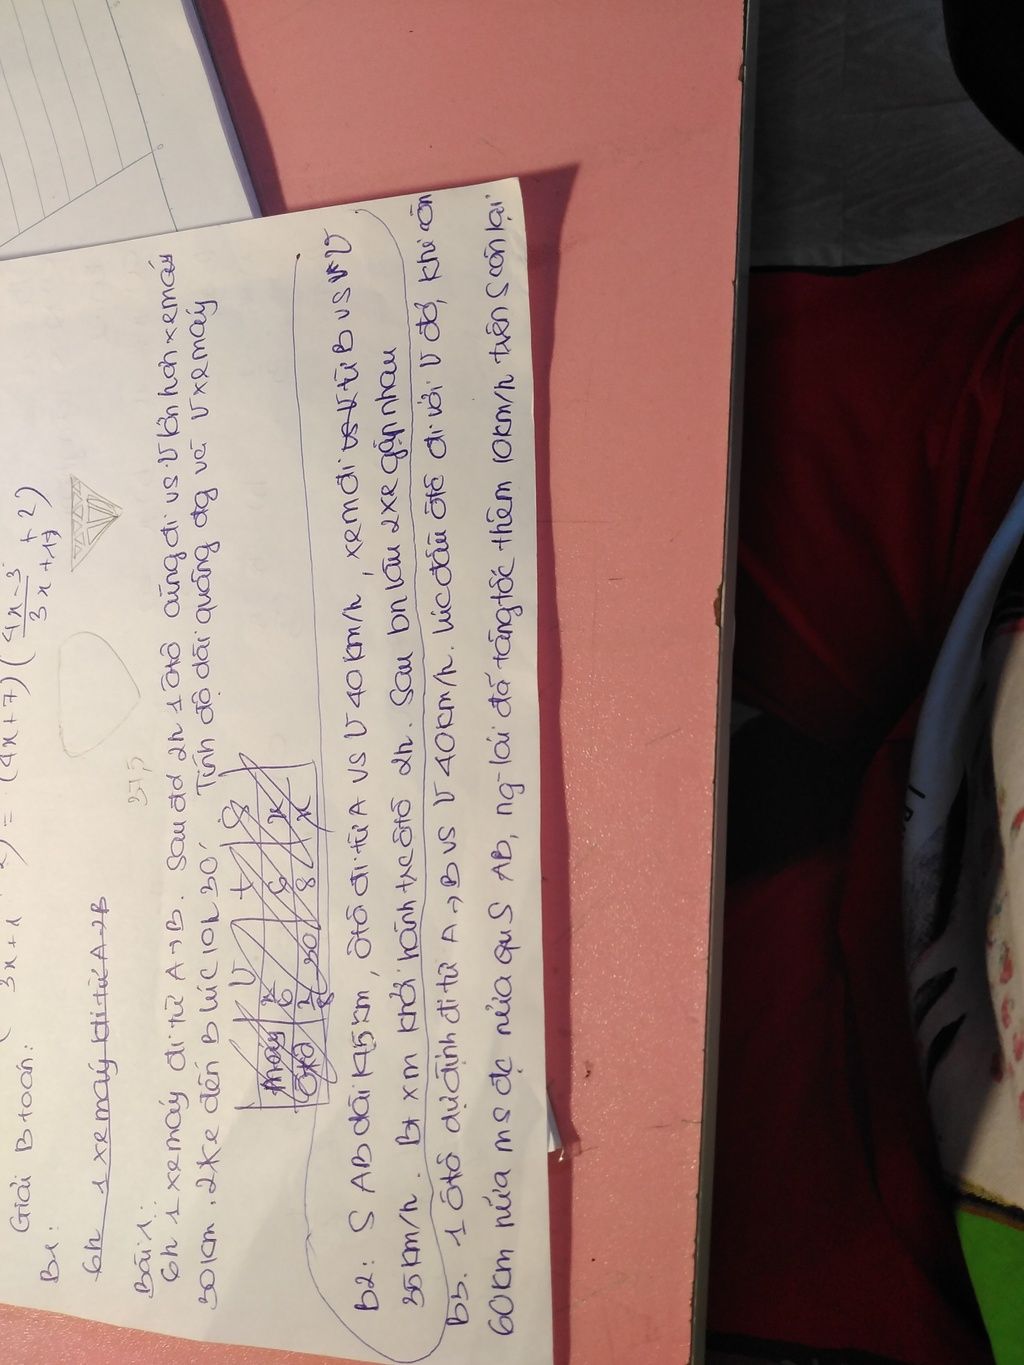 3x+1 2) = (4x+7) (4x-3 / 3x+17 + 2)
Giải B toán:
B1:
6h 1 xe máy đi từ A→B
37,5
Bài 1:
6h 1 xe máy đi từ A→B. Sau đó 2h 1 ôtô cũng đi vs V lớn hơn xe máy
30km. 2xe đến B lúc 10h30' Tính độ dài quãng đg và V xe máy
V t S
máy x/6 6 x
ôtô x/8 30 8 x
B2: S AB dài 195km, ôtô đi từ A vs V 40km/h, xe m đi vs V từ B vs V
35km/h. Bt xm khởi hành trc ôtô 2h. Sau bn lâu 2xe gặp nhau
B3. 1 ôtô dự định đi từ A→B vs V 40km/h. lúc đầu ôtô đi với V đó, khi còn
60km nữa ms đc nửa qu S AB, ng lái đã tăng tốc thêm 10km/h trên S còn lại